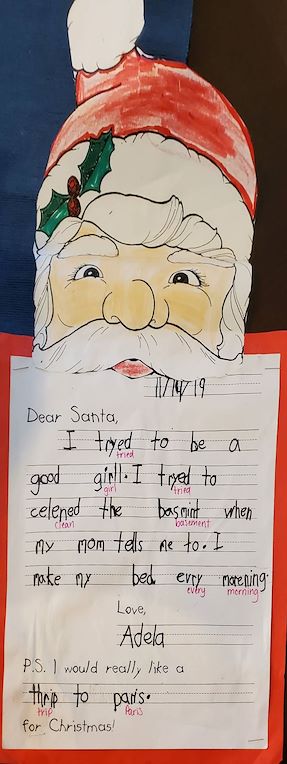 11/19/19
Dear Santa,
I tryed to be a
tried
good girll. I tryed to
girl tried
celened the basmint when
clean basement
my mom tells me to. I
make my bed evry marening.
every morning
Love,
Adela
P.S. I would really like a
thrip to paris.
trip Paris
for Christmas!